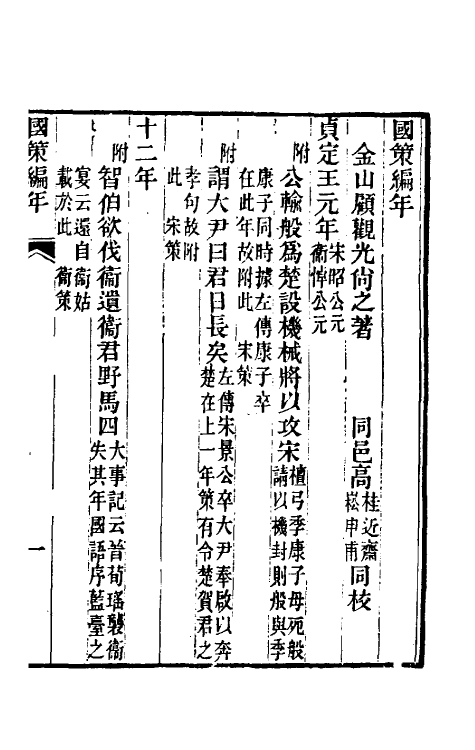 國策編年
金山顧觀光尚之著　同邑高桂近齋崧申甫同校
貞定王元年宋昭公元衞悼公元
附　公輸般爲楚設機械將以攻宋檀弓季康子母死般請以機封則般與季
康子同時據左傳康子卒在此年故附此　宋策
附　謂大尹曰君日長矣左傳宋景公卒大尹奉啟以奔楚在上一年策有令楚賀君之
孝句故附此　宋策
十二年
附　智伯欲伐衞遺衞君野馬四大事記云晉荀瑤襲衞失其年國語序藍臺之
宴云還自衞姑載於此　衞策
國策編年
一